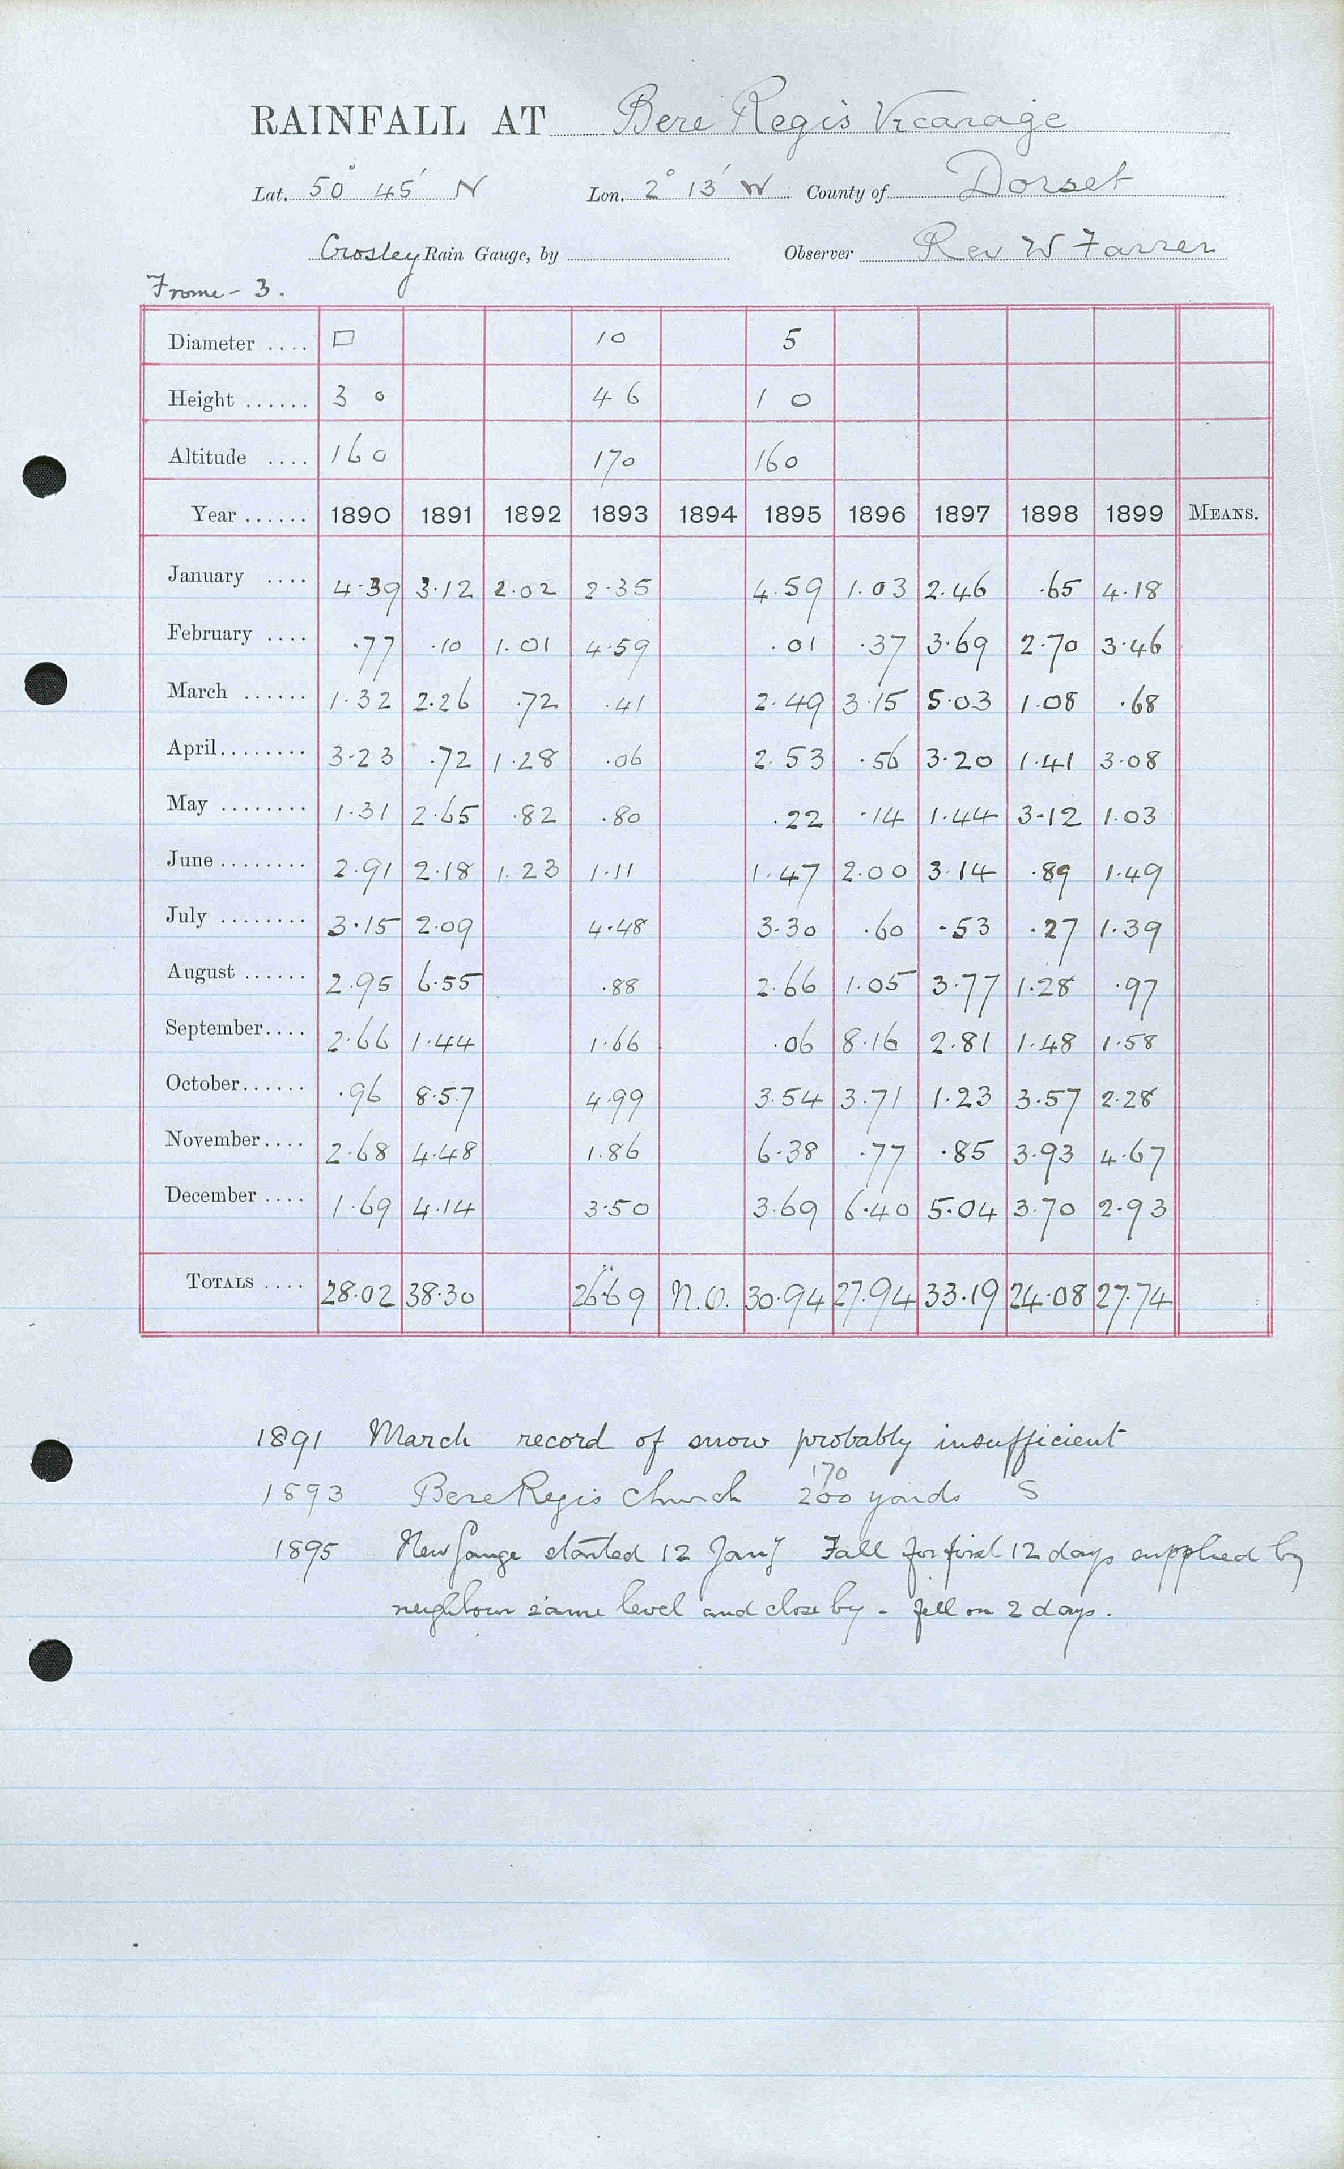 RAINFALL AT Bere Regis Vicarage
Lat. 50° 45′ N Lon. 2° 13′ W County of Dorset
Crosley Rain Gauge, by Observer Rev W Farrer
Frome - 3.
Diameter .... □ 10 5
Height ...... 3 0 4 6 1 0
Altitude .... 160 170 160
Year ...... 1890 1891 1892 1893 1894 1895 1896 1897 1898 1899 MEANS.
January .... 4.39 3.12 2.02 2.35 4.59 1.03 2.46 .65 4.18
February .... .77 .10 1.01 4.59 .01 .37 3.69 2.70 3.46
March ...... 1.32 2.26 .72 .41 2.49 3.15 5.03 1.08 .68
April........ 3.23 .72 1.28 .06 2.53 .56 3.20 1.41 3.08
May ........ 1.31 2.65 .82 .80 .22 .14 1.44 3.12 1.03
June ........ 2.91 2.18 1.23 1.11 1.47 2.00 3.14 .89 1.49
July ........ 3.15 2.09 4.48 3.30 .60 .53 .27 1.39
August ...... 2.95 6.55 .88 2.66 1.05 3.77 1.28 .97
September.... 2.66 1.44 1.66 .06 8.16 2.81 1.48 1.58
October...... .96 8.57 4.99 3.54 3.71 1.23 3.57 2.28
November.... 2.68 4.48 1.86 6.38 .77 .85 3.93 4.67
December .... 1.69 4.14 3.50 3.69 6.40 5.04 3.70 2.93
TOTALS .... 28.02 38.30 26.69 N.O. 30.94 27.94 33.19 24.08 27.74
1891 March record of snow probably insufficient
170
1893 Bere Regis Church 200 yards S
1895 New Gauge started 12 Jany Fall for first 12 days supplied by
neighbour same level and close by - fell on 2 days.